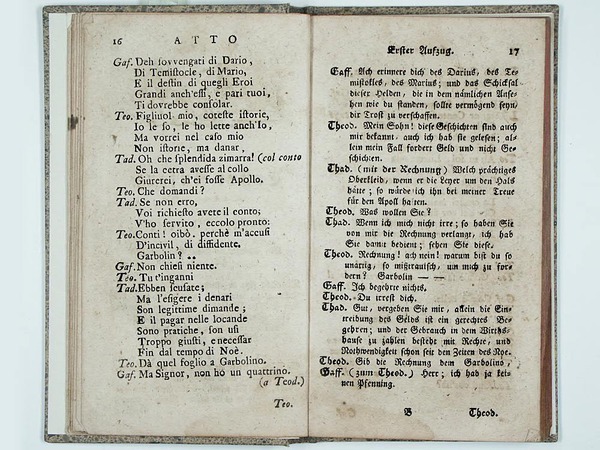 16
ATTO
Gaf. Deh sovvengati di Dario,
Di Temistocle, di Mario,
E il destin di quegli Eroi
Grandi anch'essi, e pari tuoi,
Ti dovrebbe consolar.
Teo. Figliuol mio, coteste istorie,
Io le so, le ho lette anch'io,
Ma vorrei nel caso mio
Non istorie, ma danar,
Tad. Oh che splendida zimarra! (col conto
Se la cetra avesse al collo
Giurerei, ch'ei fosse Apollo.
Teo. Che domandi?
Tad. Se non erro,
Voi richiesto avete il conto;
V'ho servito, eccolo pronto:
Teo. Conti! oibò. perchè m'accusi
D'incivil, di diffidente.
Garbolin? ..
Gaf. Non chiesi niente.
Teo. Tu t'inganni
Tad. Ebben scusate;
Ma l'esigere i denari
Son legittime dimande;
E il pagar nelle locande
Sono pratiche, son usi
Troppo giusti, e necessar
Fin dal tempo di Noè.
Teo. Dà quel foglio a Garbolino.
Gaf. Ma Signor, non ho un quattrino.
(a Teod.)
Teo.
Erster Aufzug.
17
Gaff. Ach erinnere dich des Darius, des Te-
mistokles, des Marius; und das Schicksal
dieser Helden, die in dem nämlichen Anse-
hen wie du standen, sollte vermögend seyn,
dir Trost zu verschaffen.
Theod. Mein Sohn! diese Geschichten sind auch
mir bekannt, auch ich hab sie gelesen; al-
lein mein Fall fordert Geld und nicht Ge-
schichten.
Thad. (mit der Rechnung) Welch prächtiges
Oberkleid, wenn er die Leyer um den Hals
hätte; so würde ich ihn bei meiner Treue
für den Apoll halten.
Theod. Was wollen Sie?
Thad. Wenn ich mich nicht irre; so haben Sie
von mir die Rechnung verlangt, ich hab
Sie damit bedient; sehen Sie diese.
Theod. Rechnung! ach nein! warum bist du so
unartig, so mißtrauisch, um mich zu for-
dern? Garbolin — —
Gaff. Ich begehre nichts.
Theod. Du irrest dich.
Thad. Gut, vergeben Sie mir, allein die Ein-
treibung des Gelds ist ein gerechtes Be-
gehren; und der Gebrauch in dem Wirths-
hause zu zahlen besteht mit Rechte, und
Nothwendigkeit schon seit den Zeiten des Noe.
Theod. Gib die Rechnung dem Garbolino,
Gaff. (zum Theod.) Herr; ich hab ja kei-
nen Pfenning.
B
Theod.